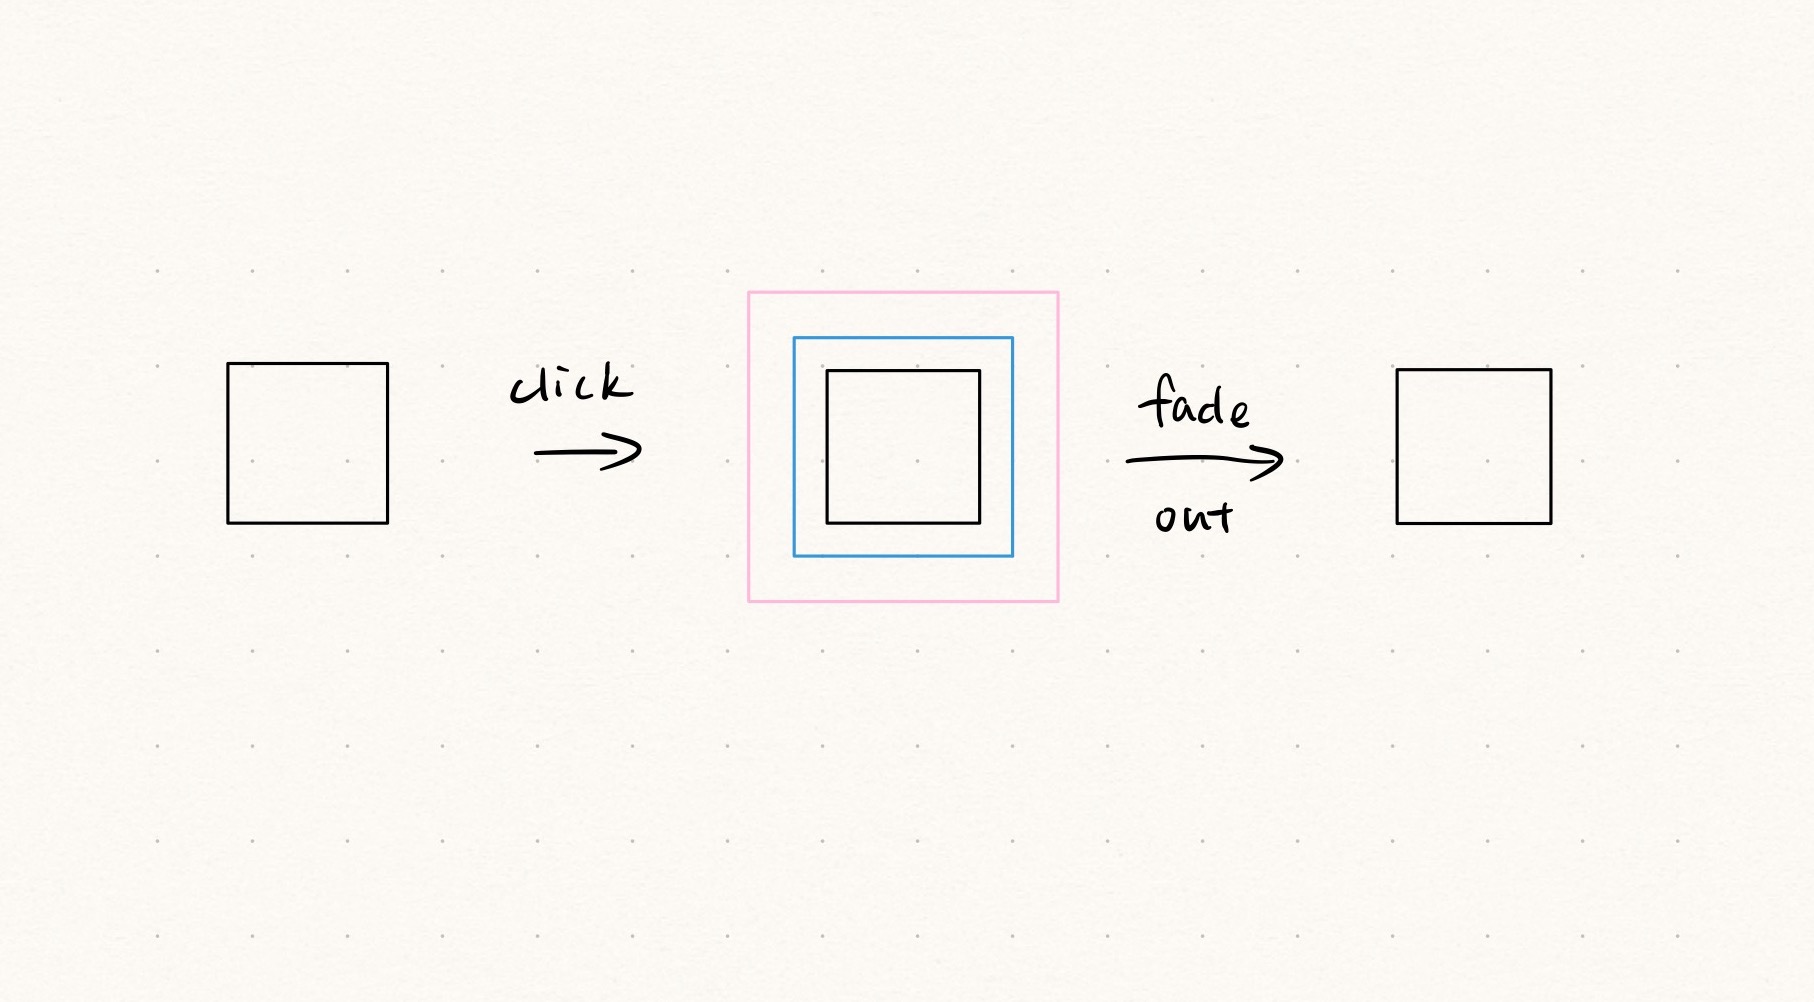 click
fade
out